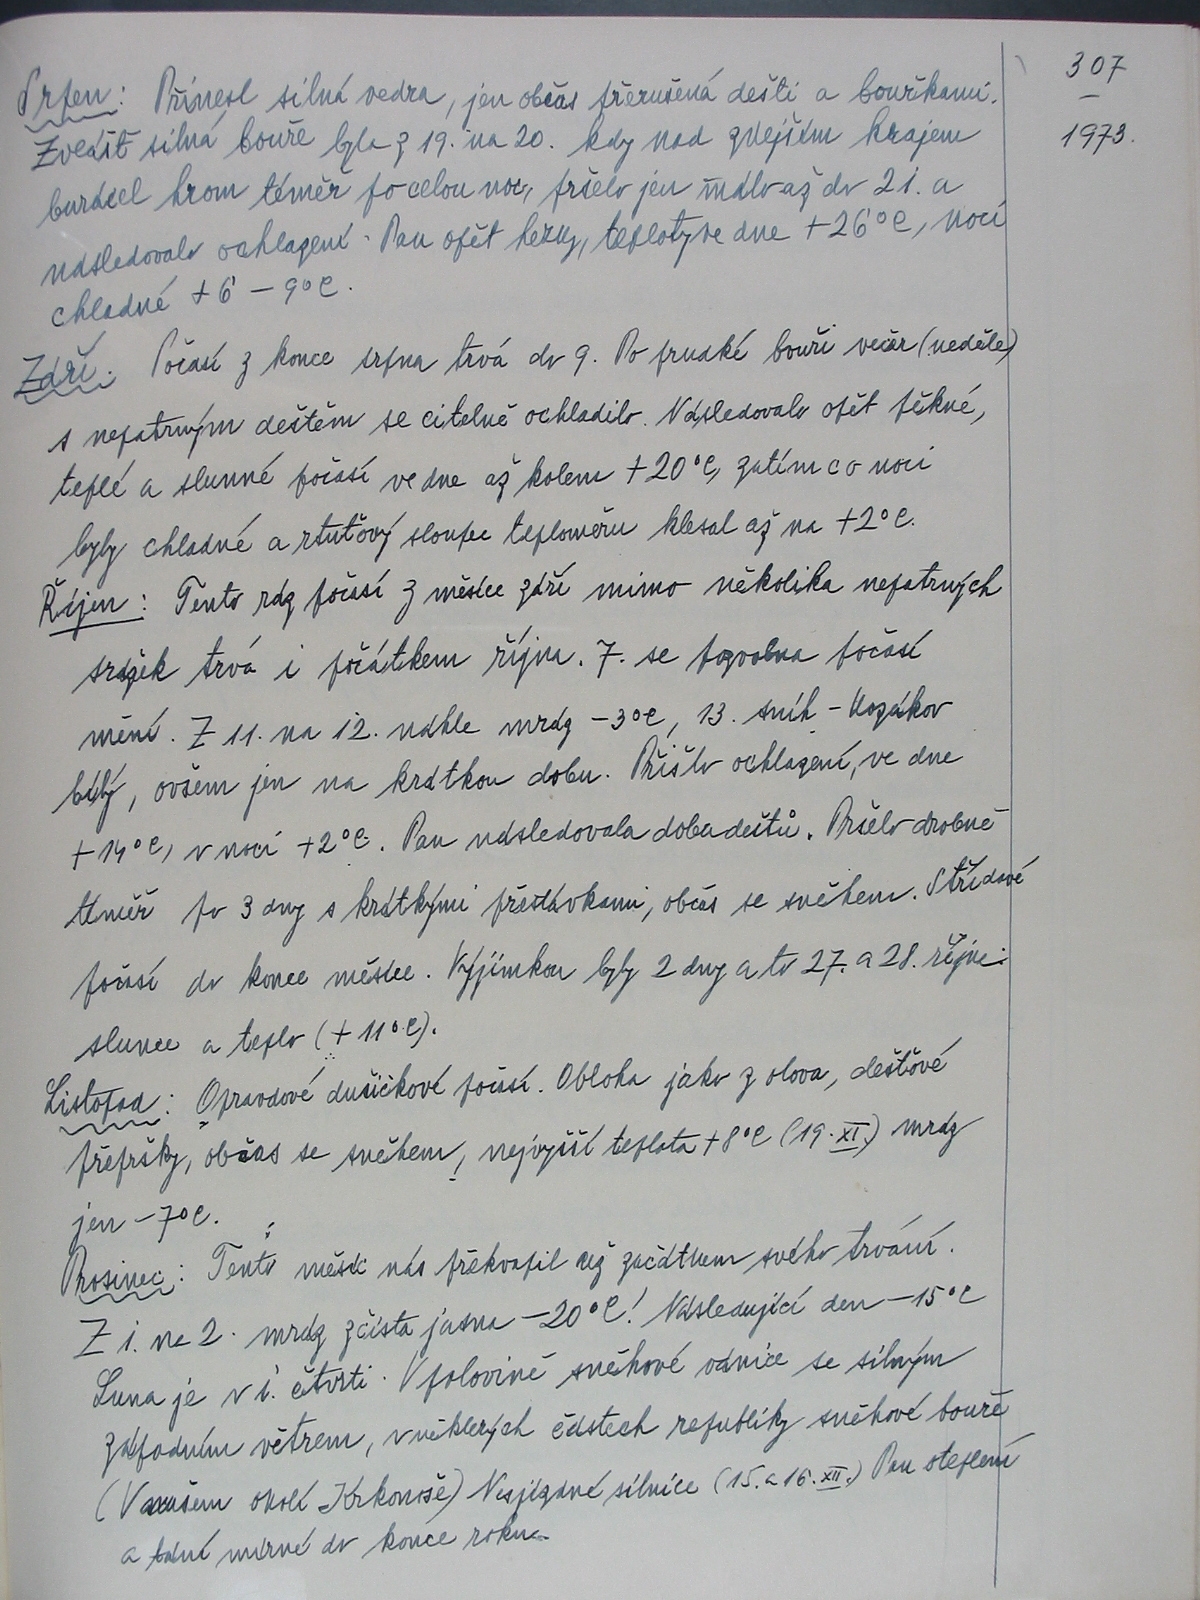 307
1973.
Srpen: Přinesl silná vedra, jen občas přerušená dešti a bouřkami.
Zvlášť silná bouře byla z 19. na 20. kdy nad zdejším krajem
burácel hrom téměř po celou noc, pršelo jen málo až do 21. a
následovalo ochlazení. Pan opět hezky, teploty ve dne +26°C, noci
chladné +6 – 9°C.
Září. Počasí z konce srpna trvá do 9. Po prudké bouři večer (neděle)
s nepatrným deštěm se citelně ochladilo. Následovalo opět pěkné,
teplé a slunné počasí ve dne až kolem +20°C, zatím co noci
byly chladné a rtuťový sloupec teploměru klesal až na +2°C.
Říjen: Tento ráz počasí z měsíce září mimo několika nepatrných
srážek trvá i počátkem října. 7. se pozvolna počasí
mění. Z 11. na 12. náhle mráz –3°C, 13. sníh – Kozákov
bílý, ovšem jen na krátkou dobu. Přišlo ochlazení, ve dne
+14°C, v noci +2°C. Pan následovala doba dešťů. Pršelo drobně
téměř po 3 dny s krátkými přestávkami, občas se sněhem. Střídavé
počasí do konce měsíce. Vyjímkou byly 2 dny a to 27. a 28. říjn:
slunce a teplo (+11°C).
Listopad: Opravdové dušičkové počasí. Obloha jako z olova, dešťové
přepršky, občas se sněhem, nejvyšší teplota +8°C (19. XI.) mráz
jen –7°C.
Prosinec: Tento měsíc nás překvapil už začátkem svého trvání.
Z 1. na 2. mráz zčista jasna –20°C! Následující den –15°C
Luna je v 1. čtvrti. V polovině sněhové vánice se silným
západním větrem, v některých částech republiky sněhové bouře
(V našem okolí Krkonoše) Nesjízdné silnice (15. a 16. XII.) Pan oteplení
a tání mírné do konce roku.